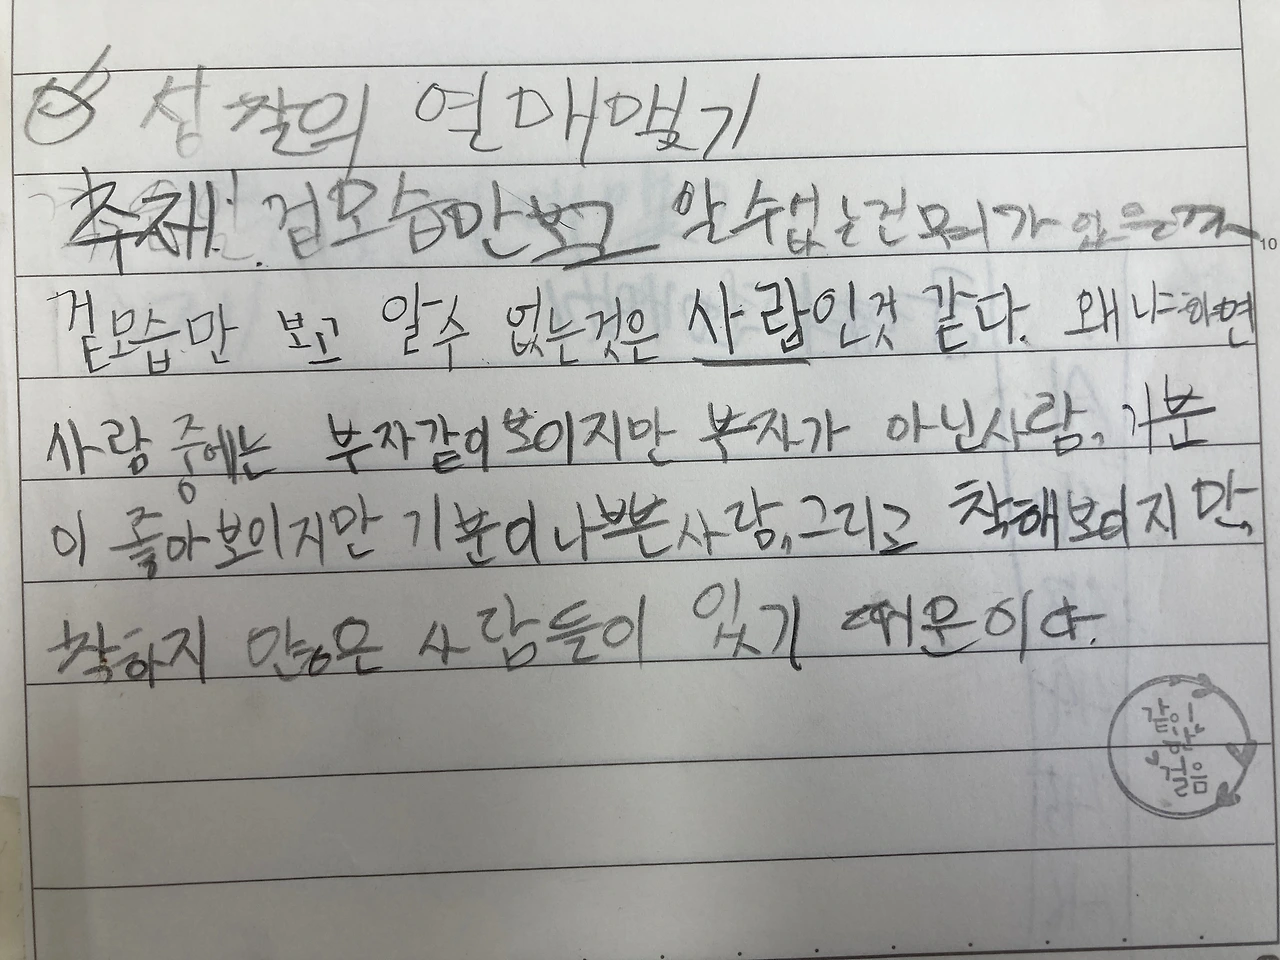 성찰의 열매맺기
주제: 겉모습만보고 알 수 없는건 뭐가 있을까
겉모습만 보고 알수 없는것은 사람인것 같다. 왜냐하면
사람 중에는 부자같이보이지만 부자가 아닌사람, 기분
이 좋아보이지만 기분이나쁜사람, 그리고 착해보이지만,
착하지 않은 사람들이 있기 때문이다.
같이
한
걸음
10